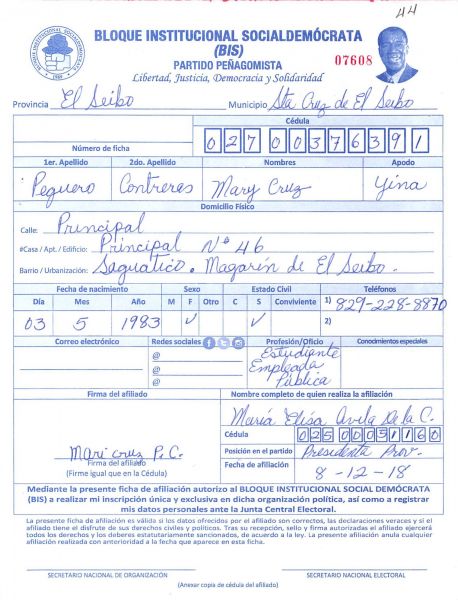 44
BLOQUE INSTITUCIONAL SOCIALDEMÓCRATA
(BIS)
PARTIDO PEÑAGOMISTA
07608
Libertad, Justicia, Democracia y Solidaridad
Provincia El Seibo Municipio Sta Cruz de El Seibo
Cédula
Número de ficha 02700376391
1er. Apellido 2do. Apellido Nombres Apodo
Peguero Contreras Mary Cruz Yina
Domicilio Físico
Calle: Principal
#Casa / Apt. / Edificio: Principal Nº 46
Barrio / Urbanización: Saguatico. Magarín de El Seibo.
Fecha de nacimiento Sexo Estado Civil Teléfonos
Día Mes Año M F Otro C S Conviviente 1) 829-228-8870
03 5 1983 ✓ ✓ 2)
Correo electrónico Redes sociales Profesión/Oficio Conocimientos especiales
@ Estudiante
@ Empleada
@ Pública
Firma del afiliado Nombre completo de quien realiza la afiliación
María Elisa Avila De la C.
Cédula 02500031160
Mari cruz P. C. Posición en el partido Presidenta Prov.
Firma del afiliado
(Firme igual que en la Cédula) Fecha de afiliación 8-12-18
Mediante la presente ficha de afiliación autorizo al BLOQUE INSTITUCIONAL SOCIAL DEMÓCRATA
(BIS) a realizar mi inscripción única y exclusiva en dicha organización política, así como a registrar
mis datos personales ante la Junta Central Electoral.
La presente ficha de afiliación es válida si los datos ofrecidos por el afiliado son correctos, las declaraciones veraces y si el
afiliado tiene el disfrute de sus derechos civiles y políticos. Tras su recepción, sello y firma autorizadas el afiliado ejercerá
todos los derechos y los deberes estatutariamente sancionados, de acuerdo a la ley. La presente afiliación anula cualquier
afiliación realizada con anterioridad a la fecha que aparece en esta ficha.
SECRETARIO NACIONAL DE ORGANIZACIÓN SECRETARIO NACIONAL ELECTORAL
(Anexar copia de cédula del afiliado)